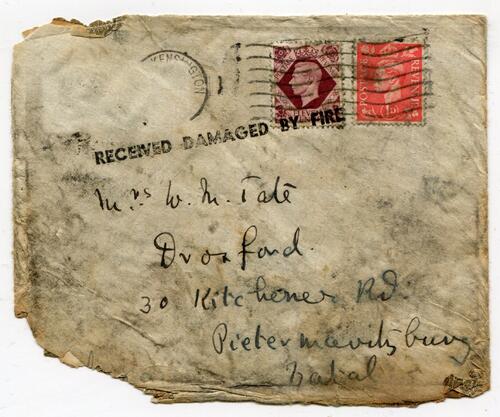 KENSINGTON
RECEIVED DAMAGED BY FIRE
Mrs W. M. Tate
Droxford.
30 Kitchener Rd.
Pietermaritzburg
Natal